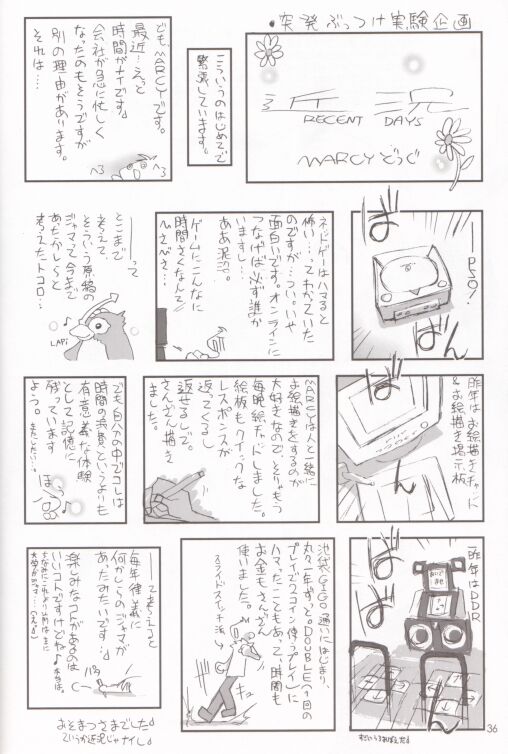 ・突発ぶっつけ実験企画
近況
RECENT DAYS
MARCYどうぐ
こういうのはじめてで
緊張しています。
ども、MARCYです。
最近…えっと
時間がナイです。
会社が急に忙しく
なったのもそうですが
別の理由があります。
それは…
ば
ばん
――PSO!
ネットゲームはハマると
怖い…ってわかっていた
のですが…つい…いや
面白いです。オンラインに
つなげば必ず誰か
いますし…
ああ泥沼。
ゲームにこんなに
時間さくなんて
ひさびさ…
――って
とここまで
考えて、
そういう原稿の
ジャマで今まで
あったかしらと
考えたトコロ…
LAPi
昨年はお絵描きチャット
&お絵描き掲示板
ばん
MARCYは人と一緒に
お絵描きをするのが
大好きなので、とりもう
毎晩絵チャットしました。
絵板もクイックな
レスポンスが
返ってくるし
返せるしで。
さんざん描き
ました。
でも自分の中でコレは
時間の浪費というよりも
有意義な体験
として記憶に
残っています
よっ。
またしたい…。
ほっ
一昨年はDDR
ばば
ん
池袋GIGO通いにはじまり、
丸々一年ずっと。DOUBLE(1回の
プレイで2コイン使うプレイ)に
ハマったこともあって時間も
お金もさんざん
使いました。
スライドスイッチ派
キュ
――って考えると
毎年律義に
何かしらのジャマが
あったみたいです…。
楽しみなコトがあるのは
いいコトですけどね♪
本当は。
おそまつさまでした♪
というか近況じゃナイし♪
36